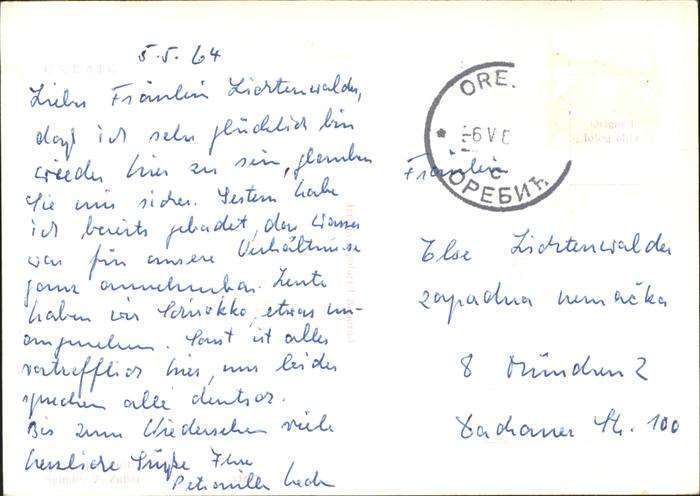 5.5.64
Liebes Fräulein Lichtenwalder,
daß ich sehr glücklich bin
wieder hier zu sein, glauben
Sie mir sicher. Gestern habe
ich bereits gebadet, das Wasser
war für unsere Verhältnisse
ganz annehmbar. Heute
haben wir Schirokko, etwas un-
angenehm. Sonst ist alles
vortrefflich hier, nur leider
sprechen alle deutsch.
Bis zum Wiedersehen viele
herzliche Grüße Ihre
Petronella
ORE.
6 V 6
ОРЕБИЋ
Fräulein
Else Lichtenwalder
zapadna nemačka
8 München 2
Dachauer Str. 100